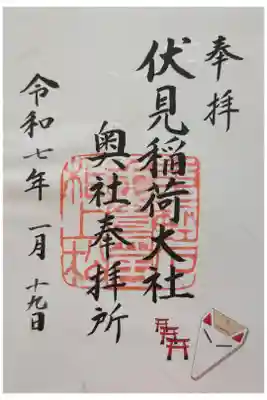 奉拝
伏見稲荷大社
奥社奉拝所
令和七年 一月 十九日